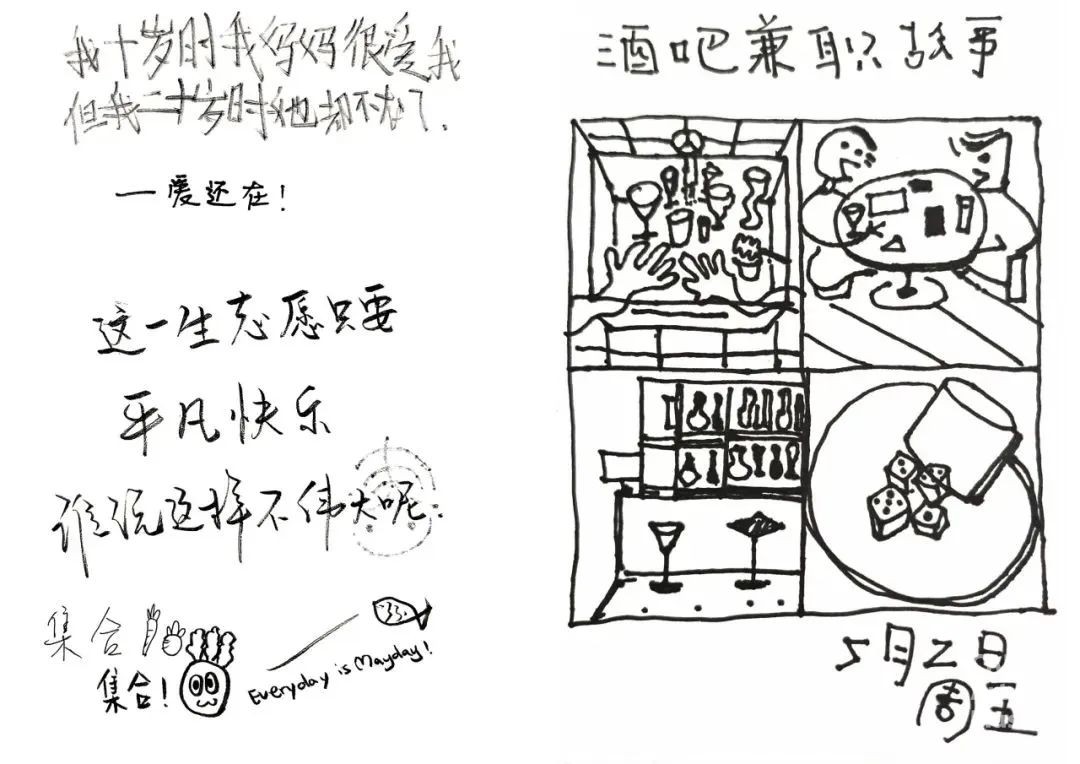 我十岁时我妈妈很爱我
但我二十岁时她却不在了.
一爱还在!
这一生志愿只要
平凡快乐
谁说这样不伟大呢.
集合
集合!
Everyday is Mayday!
酒吧兼职故事
5月2日
周五